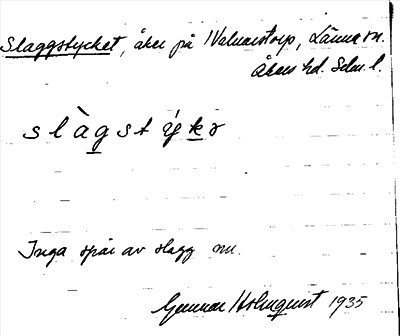 Slaggstycket, åker på Valnerstorp, Länna sn.
Åkers hd. Sdm. l.
slàgstýkə
Inga spår av slagg nu.
Gunnar Holmquist 1935